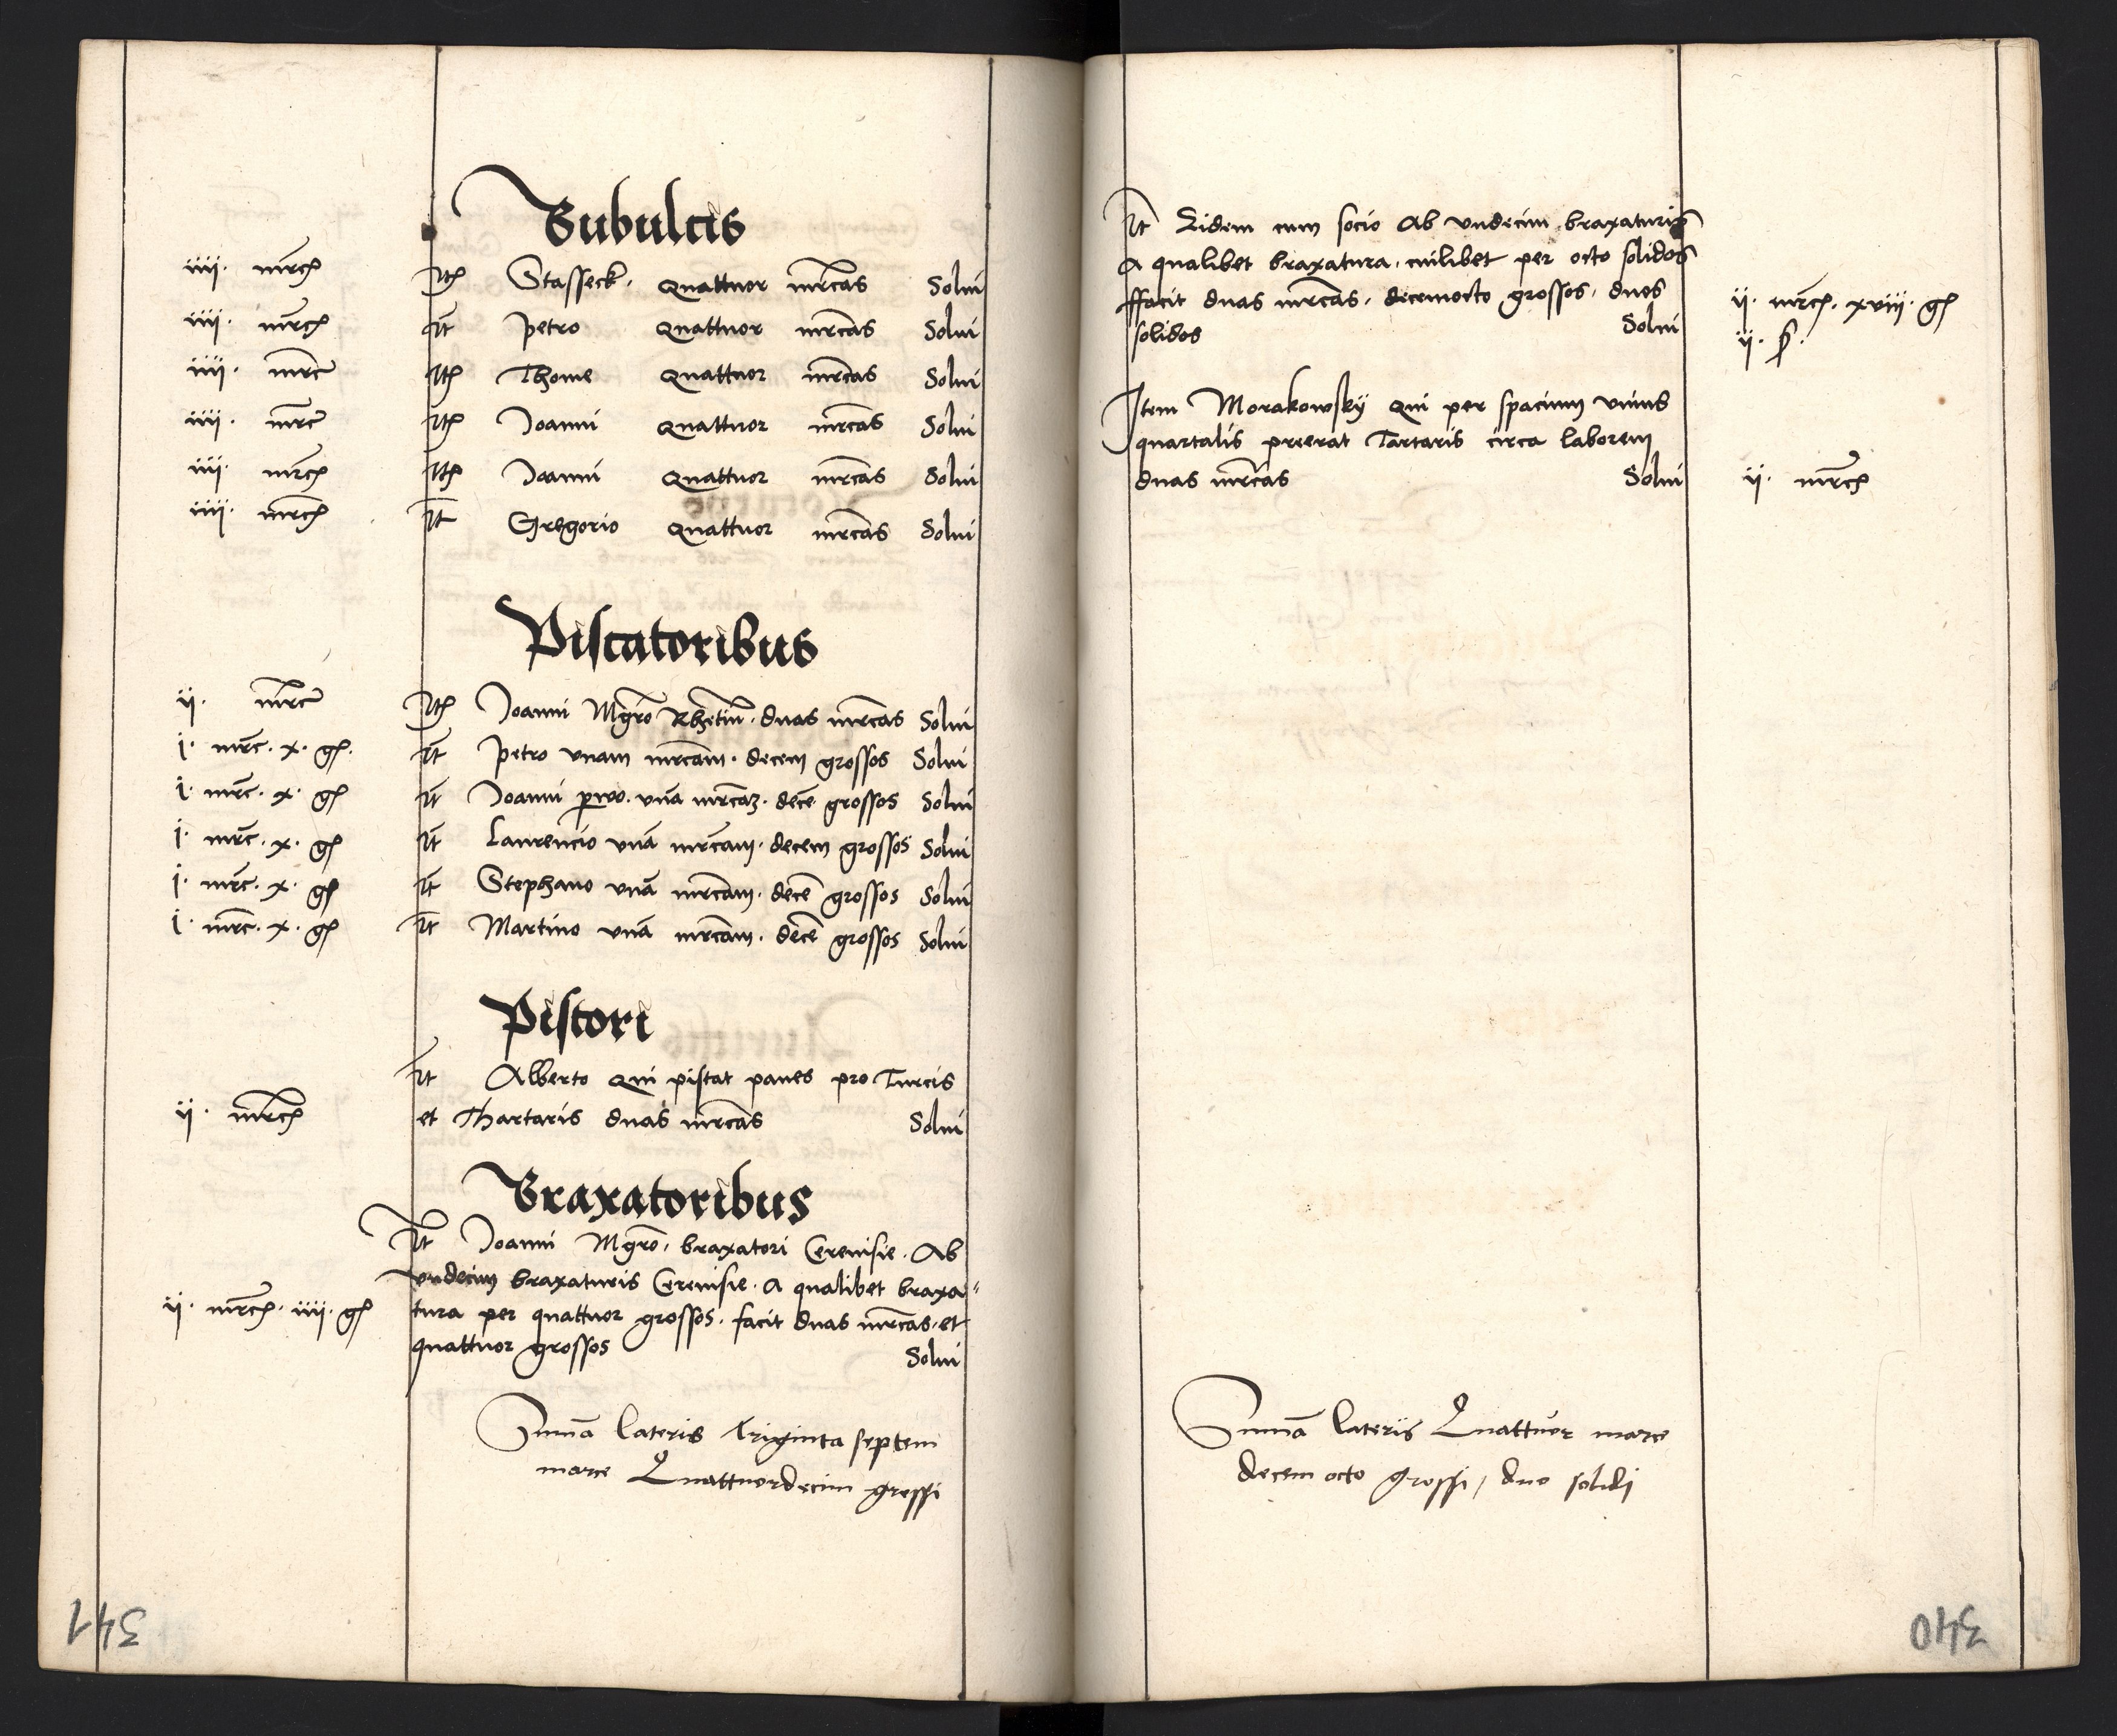 Bubulcis
iiii. mrc Itē Stasseck. Quattuor mrcas Solui
iiii. mrc It Petro Quattuor mrcas Solui
iiii. mrc Itē Thome Quattuor mrcas Solui
iiii. mrc Itē Joanni Quattuor mrcas Solui
iiii. mrc Itē Joanni Quattuor mrcas Solui
iiii. mrc It Gregorio Quattuor mrcas Solui
Piscatoribus
ii. mrc Itē Joanni Mgro duas mrcas Solui
i. mrc. x. gr. It Petro vnam mrcam. decem grossos Solui
i. mrc. x. gr It Joanni paruo. vnā mrcaz. decē grossos Solui
i. mrc. x. gr It Laurencio vnā mrcam. decem grossos Solui
i. mrc. x. gr It Stephano vnā mrcam. decē grossos Solui
i. mrc. x. gr It Martino vnā mrcam. decē grossos Solui
Pistori
It Alberto Qui pistat panes pro Turcis
ii. mrc et Thartaris duas mrcas Solui
Braxatoribus
It Joanni Mgro, braxatori Ceruisie. Ab
vndecim braxaturis Ceruisie. A qualibet braxa-
ii. mrc. iiii. gr tura per quattuor grossos. facit duas mrcas. et
quattuor grossos Solui
Summa lateris triginta septem
marce Quattuordecim grossi
341
It Eidem cum socio Ab vndecim braxaturis
A qualibet braxatura. cuilibet per octo solidos
ffacit duas mrcas. decemocto grossos. duos ii. mrc. xviii. gr
solidos Solui ii. ß.
Item Morakowsky Qui per spacium vnius
quartalis preerat Tartaris circa laborem
duas mrcas Solui ii. mrc
Summa lateris Quattuor marce
decem octo grossi, duo solidi
340